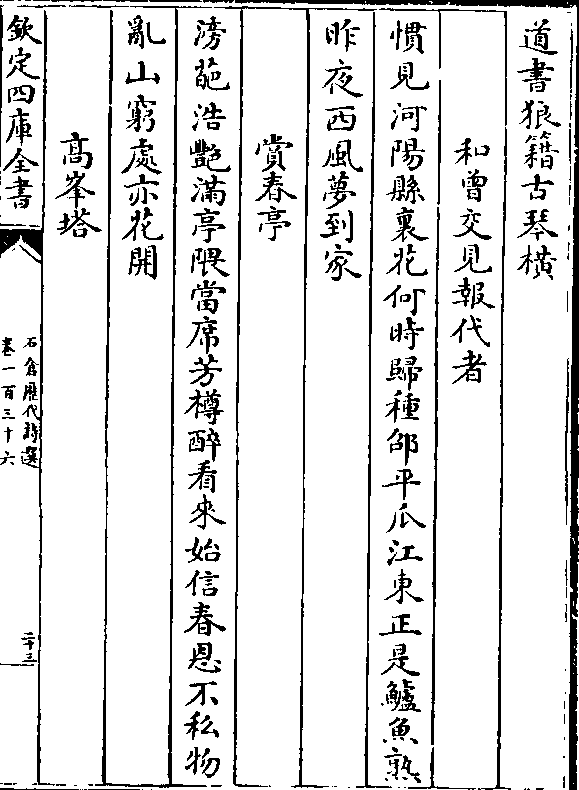 道書狼籍古琴橫
和曾交見報代者
慣見河陽縣裏花何時歸種邵平瓜江東正是鱸魚熟
昨夜西風夢到家
賞春亭
滂葩浩艷滿亭隈當席芳樽醉看來始信春恩不私物
亂山窮處亦花開
高峯塔
欽定四庫全書
石倉歷代詩選
卷一百三十六
二十三